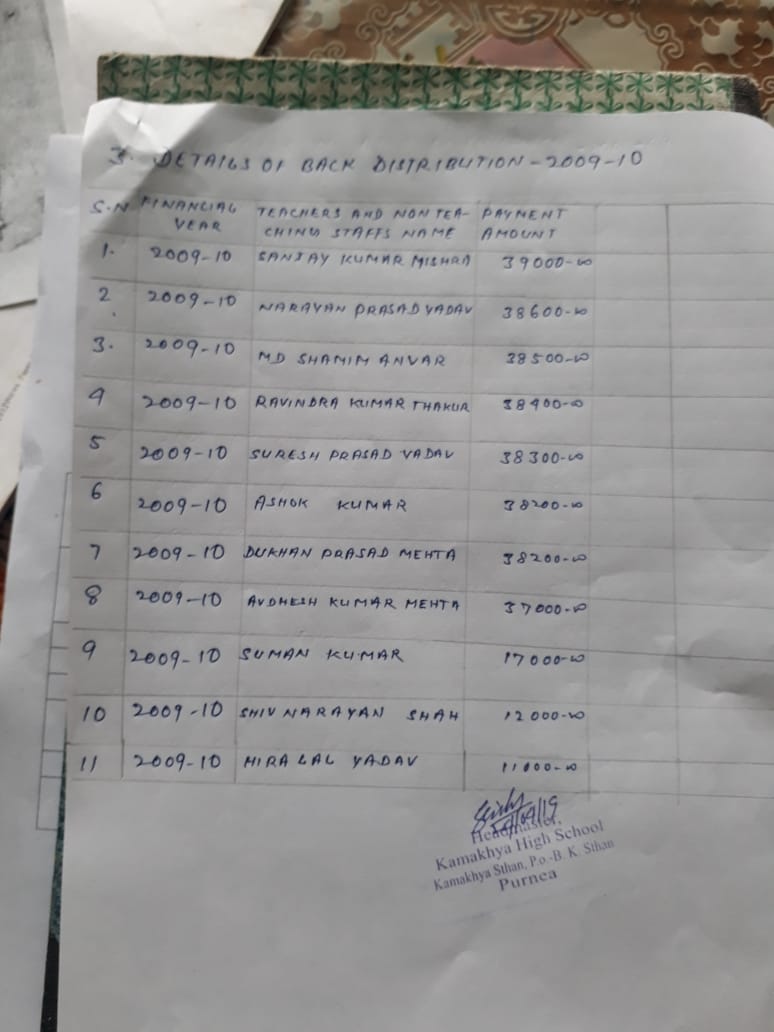 3. DETAILS OF BACK DISTRIBUTION-2009-10
S.N FINANCIAL YEAR TEACHERS AND NON TEA-CHING STAFFS NAME PAYNENT AMOUNT
1. 2009-10 SANJAY KUMAR MISHRA 39000-00
2. 2009-10 NARAYAN PRASAD YADAV 38600-00
3. 2009-10 MD SHAMIM ANVAR 38500-00
4 2009-10 RAVINDRA KUMAR THAKUR 38400-00
5 2009-10 SURESH PRASAD YADAV 38300-00
6 2009-10 ASHOK KUMAR 38200-00
7 2009-10 DUKHAN PRASAD MEHTA 38200-00
8 2009-10 AVDHESH KUMAR MEHTA 37000-00
9 2009-10 SUMAN KUMAR 17000-00
10 2009-10 SHIV NARAYAN SHAH 12000-00
11 2009-10 HIRA LAL YADAV 11000-00
Headmaster,
Kamakhya High School
Kamakhya Sthan, P.o.-B. K. Sthan
Purnea